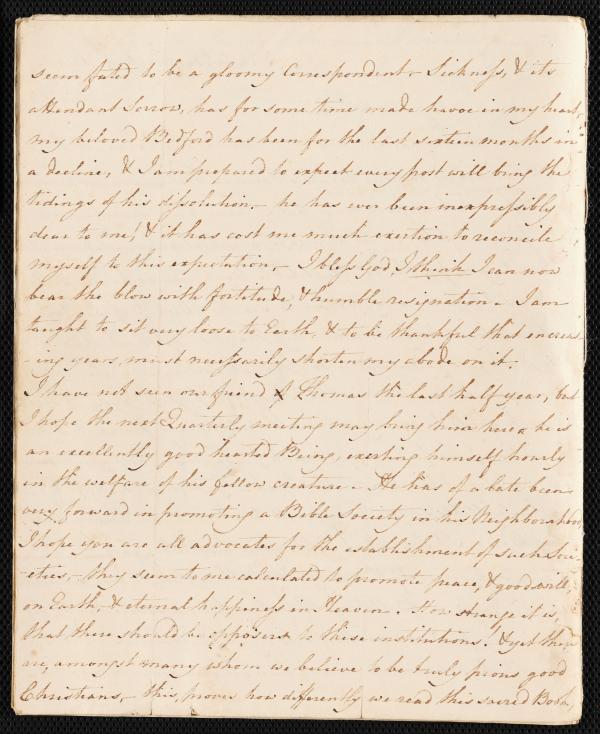 seem fated to be a gloomy Correspondent - Sickness, & its
attendant Sorrow, has for some time made havoc in my heart,
my beloved Bedford has been for the last sixteen months in
a decline, & I am prepared to expect every post will bring the
tidings of his dissolution, - he has ever been inexpressibly
dear to me! & it has cost me much exertion to reconcile
myself to this expectation, - I bless God, I think I can now
bear the blow with fortitude, & humble resignation - I am
taught to sit very loose to Earth, & to be thankful that increas
-ing years, must necessarily shorten my abode on it. -
I have not seen our friend Thomas the last half year, but
I hope the next Quarterly meeting may bring him here - he is
an excellently good hearted Being, exerting himself hourly
in the welfare of his fellow creature - He has of a late been
very forward in promoting a Bible Society in his Neighbourhood
I hope you are all advocates for the establishment of such Soci
-eties, - they seem to me calculated to promote peace, & good will,
on Earth, & eternal happiness in Heaven. How strange it is,
that there should be opposers to these institutions! & yet there
are, amongst many whom we believe to be truly pious good
Christians, - this, proves how differently we read this sacred Book,